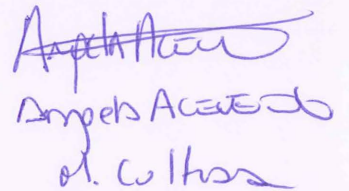 Angela Acev
Angela Acevedo
M. Cultura